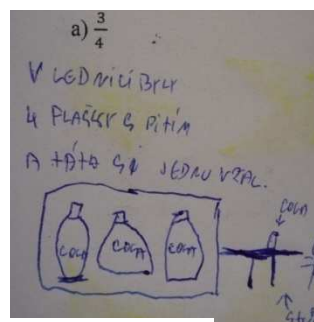 a) 3/4
V LEDNICI BYLY
4 PLAŠKY S PITÍM
A TÁTA SI JEDNU VZAL.
COLA
COLA COLA COLA